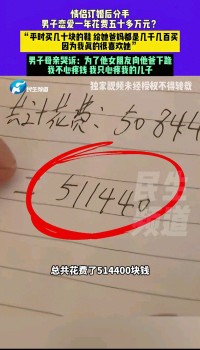 民生频道
情侣订婚后分手
男子恋爱一年花费五十多万元？
“平时买几十块的鞋 给她爸妈都是几千几百买
因为我真的很喜欢她”
男子母亲哭诉：为了他女朋友向他爸下跪
我不心疼钱 我只心疼我的儿子
独家视频未经授权不得转载
共计花费：50844
民生
频道
511440
总共花费了514400块钱